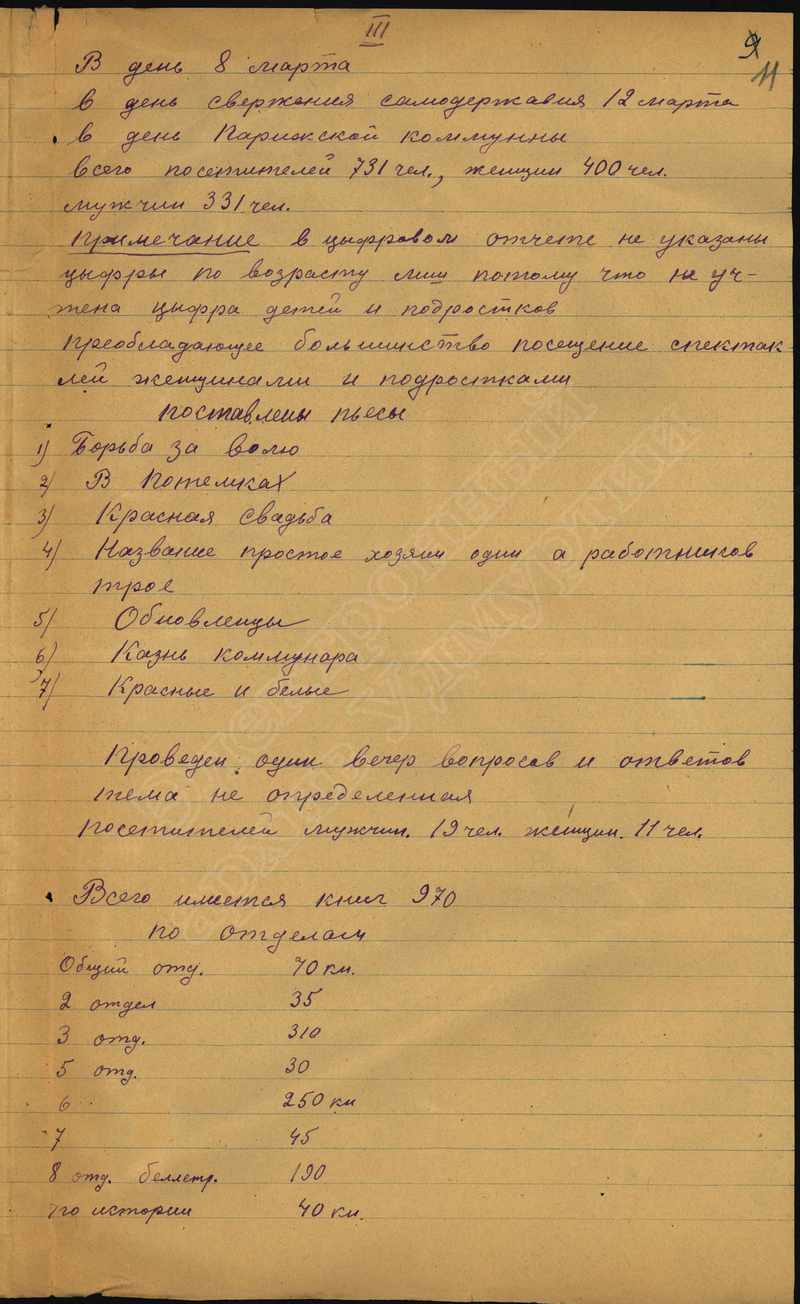 III
9
11
В день 8 марта
в день свержения самодержавия 12 марта
в день Парижской коммунны
всего посетителей 731 чел., женщин 400 чел.
мужчин 331 чел.
Примечание в цыфровом отчете не указаны
цыфры по возрасту лиш потому что не уч-
тена цыфра детей и подростков
преобладающее большинство посещение спектак-
лей женщинами и подростками
поставлены пьесы
1) Борьба за волю
2) В Потемках
3) Красная свадьба
4) Название простое хозяин один а работников
трое
5) Обновленцы
6) Казнь коммунара
7) Красные и белые
Проведен один вечер вопросов и ответов
тема не определенная
посетителей мужчин. 19 чел. женщин. 11 чел.
Всего имеется книг 970
по отделам
Общий отд. 70 кн.
2 отдел 35
3 отд. 310
5 отд. 30
6 250 кн
7 45
8 отд. беллетр. 190
по истории 40 кн.